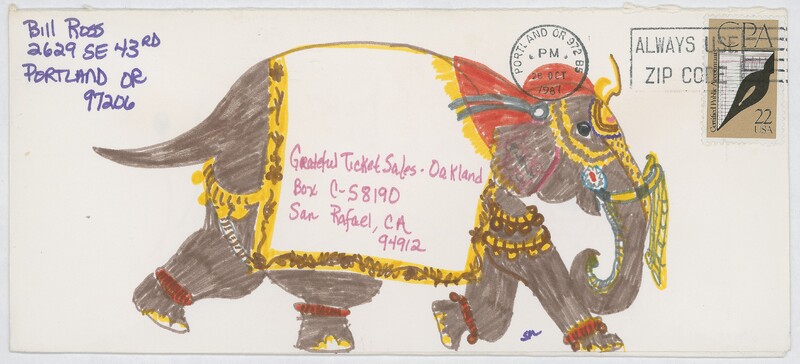 Bill Ross
2629 SE 43RD
PORTLAND OR
97206
PORTLAND OR 972
PM
26 OCT
1987
ALWAYS USE
ZIP CO
CPA
Certified Public Accountants
22
USA
Grateful Ticket Sales - Oakland
Box C-S8190
San Rafael, CA
94912